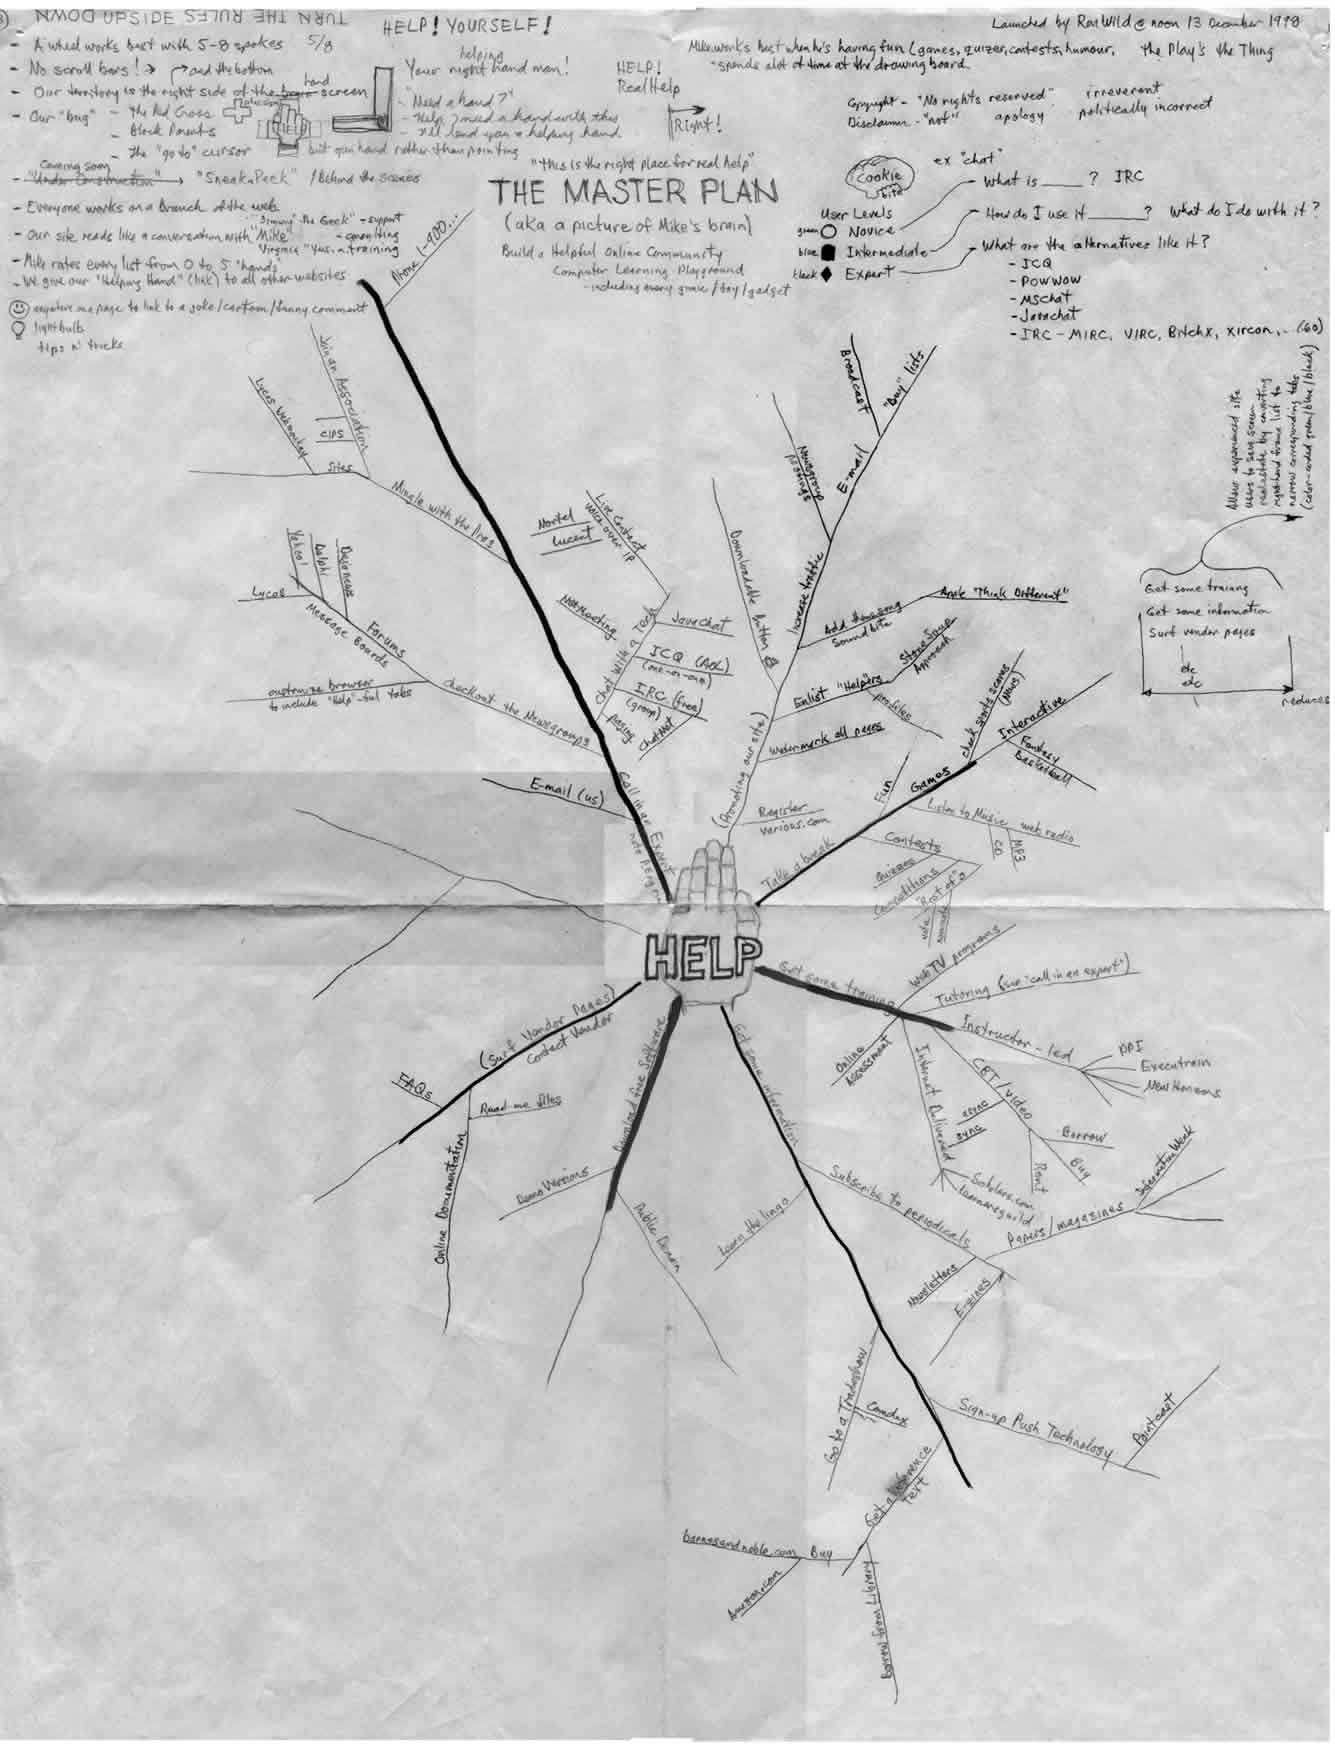 TURN THE RULES UPSIDE DOWN
- A wheel works best with 5-8 spokes 5/8
- No scroll bars! → and the bottom
- Our territory is the right side of the brain hand screen
- Our "bug" - the Red Cross
- Block Parents
- the "go to" cursor but open hand rather than pointing
Coming soon
- "Under Construction" → "Sneak a Peek" / Behind the scenes
- Everyone works on a Branch of the web
"Jimmy" the Geek" - support
- Our site reads like a conversation with "Mike" - consulting
Virginia "Yes, in training
- Mike rates every list from 0 to 5 "hands"
- We give our "Helping Hand" (link) to all other websites
anywhere on a page to link to a joke/cartoon/funny comment
lightbulb
tips n' tricks
HELP! YOURSELF!
helping
Your right hand man!
- "Need a hand?"
- Help, I need a hand with this
- I'll lend you a helping hand
HELP!
RealHelp
Right!
"this is the right place for real help"
THE MASTER PLAN
(aka a picture of Mike's brain)
Build a Helpful Online Community
Computer Learning Playground
- including every game/toy/gadget
Launched by Ron Wild @ noon 13 December 1998
Mike works best when he's having fun (games, quizzes, contests, humour, the Play's the Thing
*spends a lot of time at the drawing board.
Copyright - "No rights reserved" irreverent
Disclaimer - "not" apology politically incorrect
Cookie
bite
ex "chat"
What is ____? IRC
User Levels
green Novice
How do I use it ____? What do I do with it?
blue Intermediate
What are the alternatives like it?
black Expert
- ICQ
- POWWOW
- MSchat
- Javachat
- IRC - MIRC, VIRC, BitchX, Xircon, .. (60)
Allow experienced site
users to save screen
real estate by converting
right-hand frame list to
narrow corresponding tabs
(color-coded green/blue/black)
Get some training
Get some information
Surf vendor pages
etc
etc
reduces
HELP
Call in an Expert
Phone 1-900...
Mingle with the Pros
Sites
Lycos Webmonkey
Join an Association
CIPS
Checkout the Newsgroups
Forums
Message Boards
Lycos
Yahoo!
Delphi
Dejanews
customize browser
to include "Help"-ful tabs
E-mail (us)
Chat with a Tech
Live Contact
Voice over IP
Nortel
Lucent
NetMeeting
Javachat
ICQ (AOL)
(one-on-one)
IRC (free)
(group)
paging
ChatNet
(Promoting our site)
Register
various.com
Watermark all pages
Enlist "Helpers
Stone Soup
Approach
profiles
Downloadable Button
Increase traffic
Add theme song
Sound bite
Apple "Think Different"
Newsgroup
postings
E-mail
Broadcast
"Buy" lists
Take a break
Fun
Games
check sports scores
(News)
Interactive
Fantasy
Basketball
Listen to Music
web radio
CD
MP3
Contests
Quizzes
Competitions
"Best of"s
vote
nominate
Get some training
Web TV programs
Tutoring (see "call in an expert")
Instructor-led
PBI
Executrain
New Horizons
Online
Assessment
Internet Delivered
async
sync
Scholars.com
learnersguild
CBT/video
Borrow
Buy
Rent
Get some information
Learn the lingo
Subscribe to periodicals
Papers/magazines
InformationWeek
Newsletters
E-zines
Go to a Tradeshow
Comdex
Sign-up Push Technology
Pointcast
Get a Reference
Text
Buy
barnesandnoble.com
Amazon.com
Borrow from Library
Download free Software
Demo Versions
Public Domain
(Surf Vendor Pages)
Contact Vendor
FAQs
Read-me files
Online Documentation